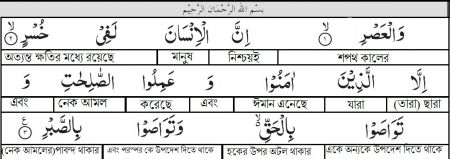 بِسْمِ اللهِ الرَّحْمَانِ الرَّحِيْمِ
وَالْعَصْرِ ۙ﴿١﴾ اِنَّ الْاِنْسَانَ لَفِىْ خُسْرٍ ۙ﴿٢﴾
অত্যন্ত ক্ষতির মধ্যে রয়েছে মানুষ নিশ্চয়ই শপথ কালের
اِلَّا الَّذِيْنَ اٰمَنُوْا وَ عَمِلُوا الصّٰلِحٰتِ وَ
এবং নেক আমল করেছে এবং ঈমান এনেছে যারা (তারা) ছাড়া
تَوَاصَوْا بِالْحَقِّ ۙ وَتَوَاصَوْا بِالصَّبْرِ ﴿٣﴾
(নেক আমলের)পাবন্দ থাকার এবং পরস্পর কে উপদেশ দিতে থাকে হকের উপর অটল থাকার একে অন্যকে উপদেশ দিতে থাকে